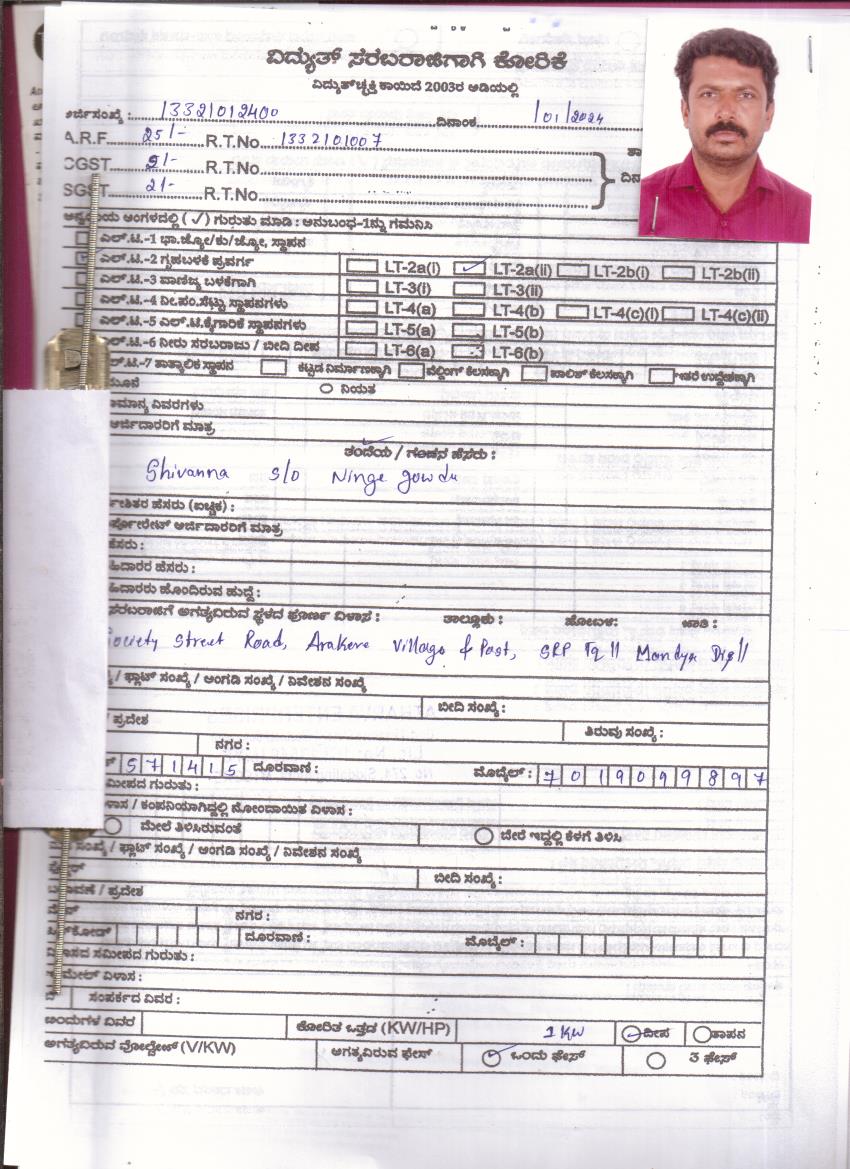 ವಿದ್ಯುತ್ ಸರಬರಾಜಿಗಾಗಿ ಕೋರಿಕೆ
ವಿದ್ಯುತ್‌ಚ್ಛಕ್ತಿ ಕಾಯಿದೆ 2003ರ ಅಡಿಯಲ್ಲಿ
ಅರ್ಜಿಸಂಖ್ಯೆ : 13321012400 ದಿನಾಂಕ /01/2024
A.R.F. 25/- R.T.No. 1332101007
CGST 2/- R.T.No.
SGST 2/- R.T.No.
ಅನ್ವಯಿಸುವ ಅಂಗಳದಲ್ಲಿ (✓) ಗುರುತು ಮಾಡಿ : ಅನುಬಂಧ-1ನ್ನು ಗಮನಿಸಿ
ಎಲ್.ಟಿ.-1 ಭಾ.ಜ್ಯೋ/ಕು/ಜ್ಯೋ, ಸ್ಥಾಪನ
ಎಲ್.ಟಿ.-2 ಗೃಹಬಳಕೆ ಪ್ರವರ್ಗ LT-2a(i) ✓ LT-2a(ii) LT-2b(i) LT-2b(ii)
ಎಲ್.ಟಿ.-3 ವಾಣಿಜ್ಯ ಬಳಕೆಗಾಗಿ LT-3(i) LT-3(ii)
ಎಲ್.ಟಿ.-4 ನೀ.ಪಂ.ಸೆಟ್ಟು ಸ್ಥಾಪನಗಳು LT-4(a) LT-4(b) LT-4(c)(i) LT-4(c)(ii)
ಎಲ್.ಟಿ.-5 ಎಲ್.ಟಿ.ಕೈಗಾರಿಕೆ ಸ್ಥಾಪನಗಳು LT-5(a) LT-5(b)
ಎಲ್.ಟಿ.-6 ನೀರು ಸರಬರಾಜು / ಬೀದಿ ದೀಪ LT-6(a) LT-6(b)
ಎಲ್.ಟಿ.-7 ತಾತ್ಕಾಲಿಕ ಸ್ಥಾಪನ ಕಟ್ಟಡ ನಿರ್ಮಾಣಕ್ಕಾಗಿ ವೆಲ್ಡಿಂಗ್ ಕೆಲಸಕ್ಕಾಗಿ ಪಾಲಿಶ್ ಕೆಲಸಕ್ಕಾಗಿ ಇತರೆ ಉದ್ದೇಶಕ್ಕಾಗಿ
ನಿಯತ
ಸಾಮಾನ್ಯ ವಿವರಗಳು
ಅರ್ಜಿದಾರರಿಗೆ ಮಾತ್ರ
ತಂದೆಯ / ಗಂಡನ ಹೆಸರು :
Shivanna S/o Ninge gowda
ಹೆಸರು (ಐಚ್ಛಿಕ) :
ಅರ್ಜಿದಾರರಿಗೆ ಮಾತ್ರ
ಹೆಸರು :
ಹೆಸರು :
ಹೊಂದಿರುವ ಹುದ್ದೆ :
ಸರಬರಾಜಿಗೆ ಅಗತ್ಯವಿರುವ ಸ್ಥಳದ ಪೂರ್ಣ ವಿಳಾಸ : ತಾಲ್ಲೂಕು : ಹೋಬಳಿ: ಜಾತಿ :
Society Street Road, Arakere Village & Post, SRP Tq || Mandya Dis||
/ ಫ್ಲಾಟ್ ಸಂಖ್ಯೆ / ಅಂಗಡಿ ಸಂಖ್ಯೆ / ನಿವೇಶನ ಸಂಖ್ಯೆ
ಬೀದಿ ಸಂಖ್ಯೆ :
/ ಪ್ರದೇಶ ತಿರುವು ಸಂಖ್ಯೆ :
ನಗರ :
571415 ದೂರವಾಣಿ : ಮೊಬೈಲ್ : 7019099897
ಸಮೀಪದ ಗುರುತು :
ವಿಳಾಸ / ಕಂಪನಿಯಾಗಿದ್ದಲ್ಲಿ ನೋಂದಾಯಿತ ವಿಳಾಸ :
ಮೇಲೆ ತಿಳಿಸಿರುವಂತೆ ಬೇರೆ ಇದ್ದಲ್ಲಿ ಕೆಳಗೆ ತಿಳಿಸಿ
ಸಂಖ್ಯೆ / ಫ್ಲಾಟ್ ಸಂಖ್ಯೆ / ಅಂಗಡಿ ಸಂಖ್ಯೆ / ನಿವೇಶನ ಸಂಖ್ಯೆ
ಬೀದಿ ಸಂಖ್ಯೆ :
ಬಡಾವಣೆ / ಪ್ರದೇಶ
ನಗರ :
ಪಿನ್‌ಕೋಡ್ ದೂರವಾಣಿ : ಮೊಬೈಲ್ :
ಸಮೀಪದ ಗುರುತು :
ಮೇಲ್ ವಿಳಾಸ :
ಸಂಪರ್ಕದ ವಿವರ :
ವಿವರ ಕೋರಿತ ಒತ್ತಡ (KW/HP) 1 KW ದೀಪ ತಾಪನ
ಅಗತ್ಯವಿರುವ ವೋಲ್ಟೇಜ್ (V/KW) ಅಗತ್ಯವಿರುವ ಫೇಸ್ ✓ ಒಂದು ಫೇಸ್ 3 ಫೇಸ್